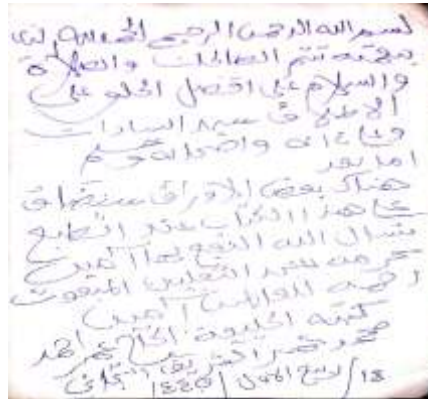 بسم الله الرحمن الرحيم الحمد لله الذي
بنعمته تتم الصالحات والصلاة
والسلام على افضل الخلق على
الاطلاق سيد السادات
واصحابه
اما بعد
هناك بعض الاوراق ستضاف
هذا الكتاب عند الطابع
نسأل الله النفع بها آمين
بحرمة سيد الثقلين المبعوث
رحمة للعالمين آمين
كتبه الخليفة الحاج عمر احمد
محمد الشريف التجاني
18/ربيع الاول/